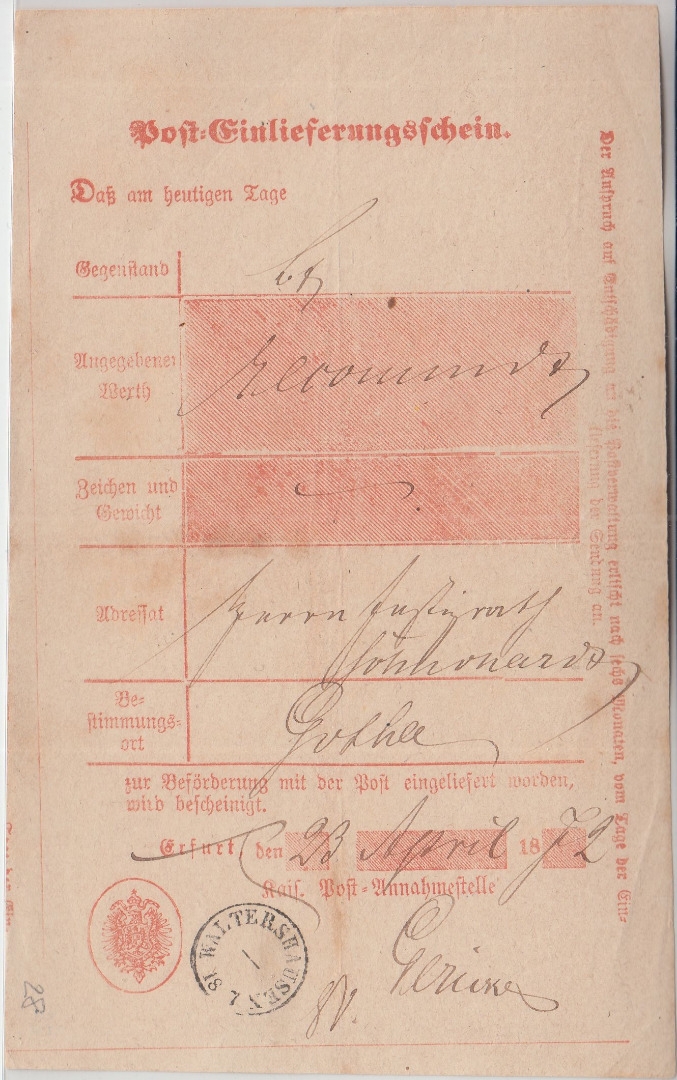 Post-Einlieferungsschein.
Daß am heutigen Tage
Gegenstand
Angegebener
Werth
Recommndt
Zeichen und
Gewicht
Adressat
Herrn Justizrath
Be-
stimmungs-
ort
Gotha
zur Beförderung mit der Post eingeliefert worden,
wird bescheinigt.
Erfurt, den 23 April 1872
Kais. Post-Annahmestelle
WALTERSHAUSEN
Gericke
28
Der Anspruch auf Entschädigung an die Postverwaltung erlischt nach sechs Monaten, vom Tage der Ein-
lieferung der Sendung an.